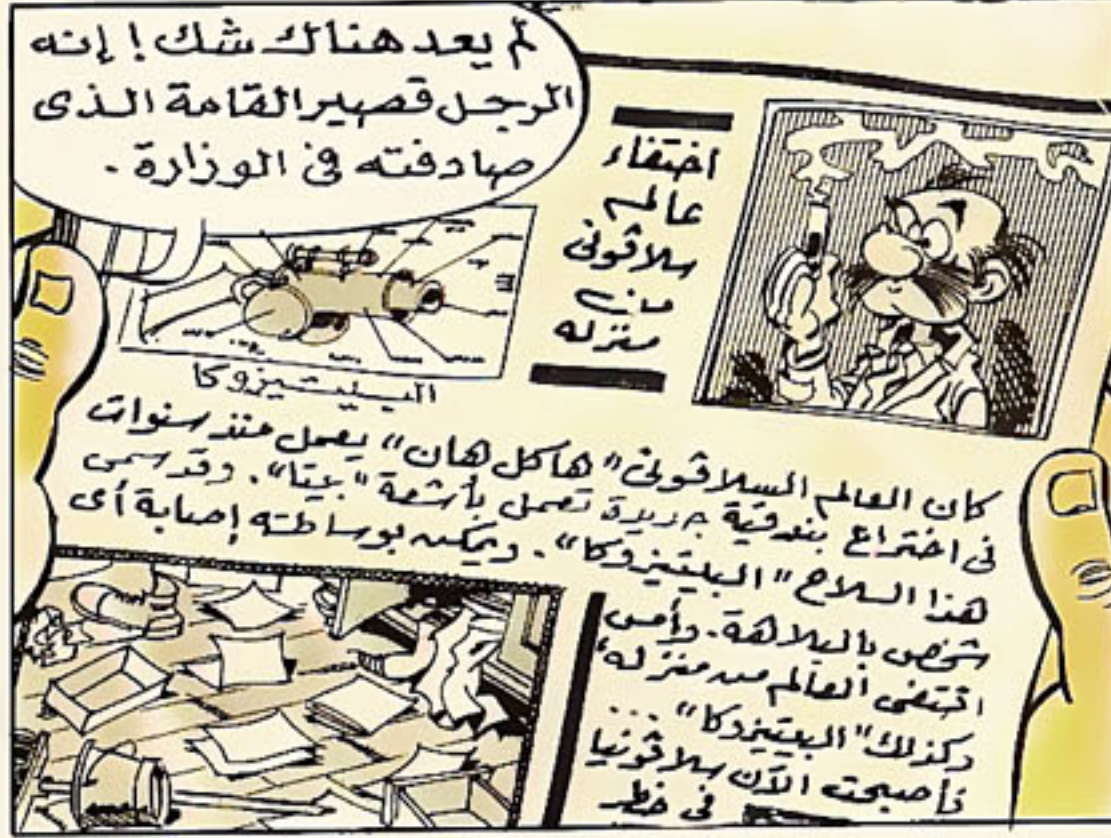 لم يعد هناك شك! إنه
الرجل قصير القامة الذى
صادفته فى الوزارة.
اختفاء
عالم
سلاڤونى
من
منزله
كان العالم السلاڤونى "هاكل هان" يعمل منذ سنوات
فى اختراع بندقية جديدة تعمل بأشعة "بيتا". وقد سمى
هذا السلاح "البليتيزوكا". ويمكنه بوساطته إصابة أى
شخص بالبلاهة. وأمس
اختفى العالم من منزله،
وكذلك "البليتيزوكا"...
فأصبحت الآن سلاڤونيا
فى خطر